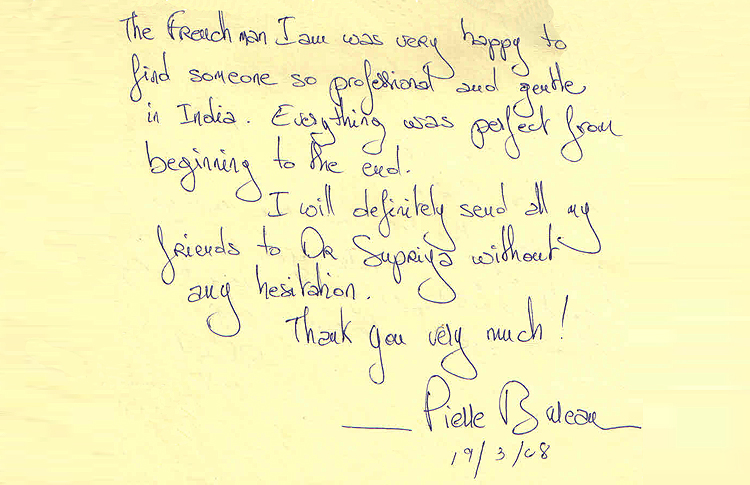 The French man I am was very happy to
find someone so professional and gentle
in India. Everything was perfect from
beginning to the end.
I will definitely send all my
friends to DR Supriya without
any hesitation.
Thank you very much!
Pierre
19/3/08